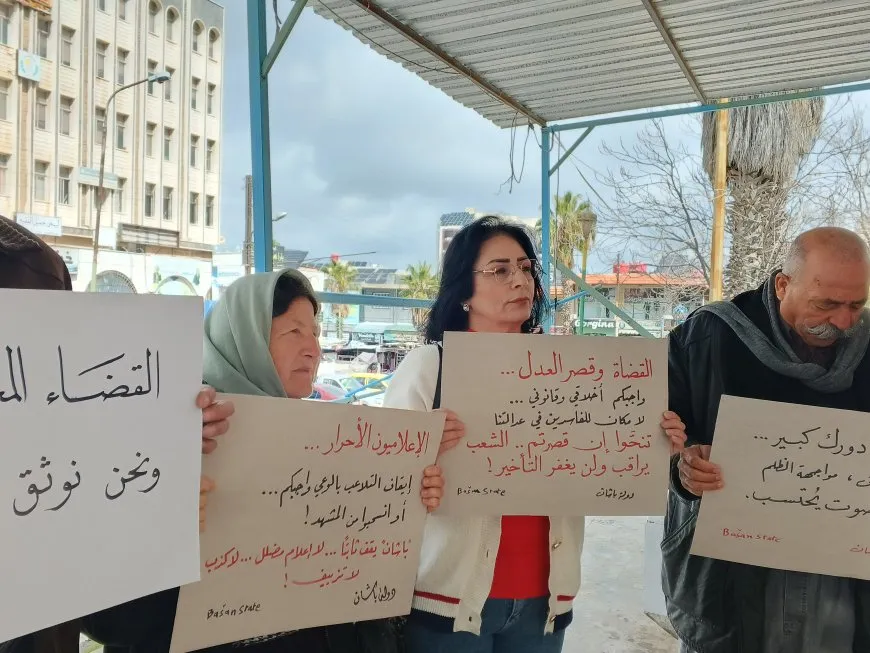 القضاء
ونحن نوثق
الإعلاميون الأحرار...
إيقاف التلاعب بالوعي واجبكم...
أو انسحبوا من المشهد!
"باشان" يقف ثابتًا... لا إعلام مضلل... لا كذب
لا تزييف!
دولة باشان
Bašan state
القضاة وقصر العدل...
واجبكم أخلاقي وقانوني...
لا مكان للفاسدين في عدالتنا
تنحّوا إن قصرتم.. الشعب
يراقب ولن يغفر التأخير!
دولة باشان
Bašan State
دورك كبير...
، مواجهة الظلم
صوت يُحتسب.
Bašan state
Gorgina